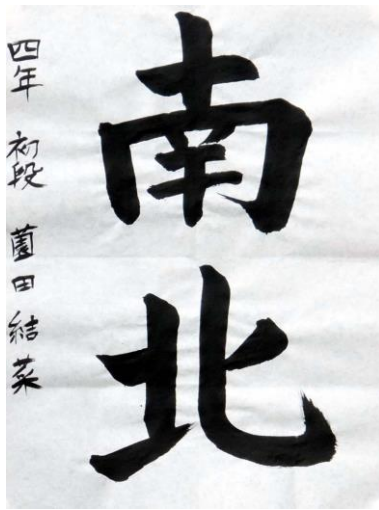 南北
四年 初段 薗田結菜